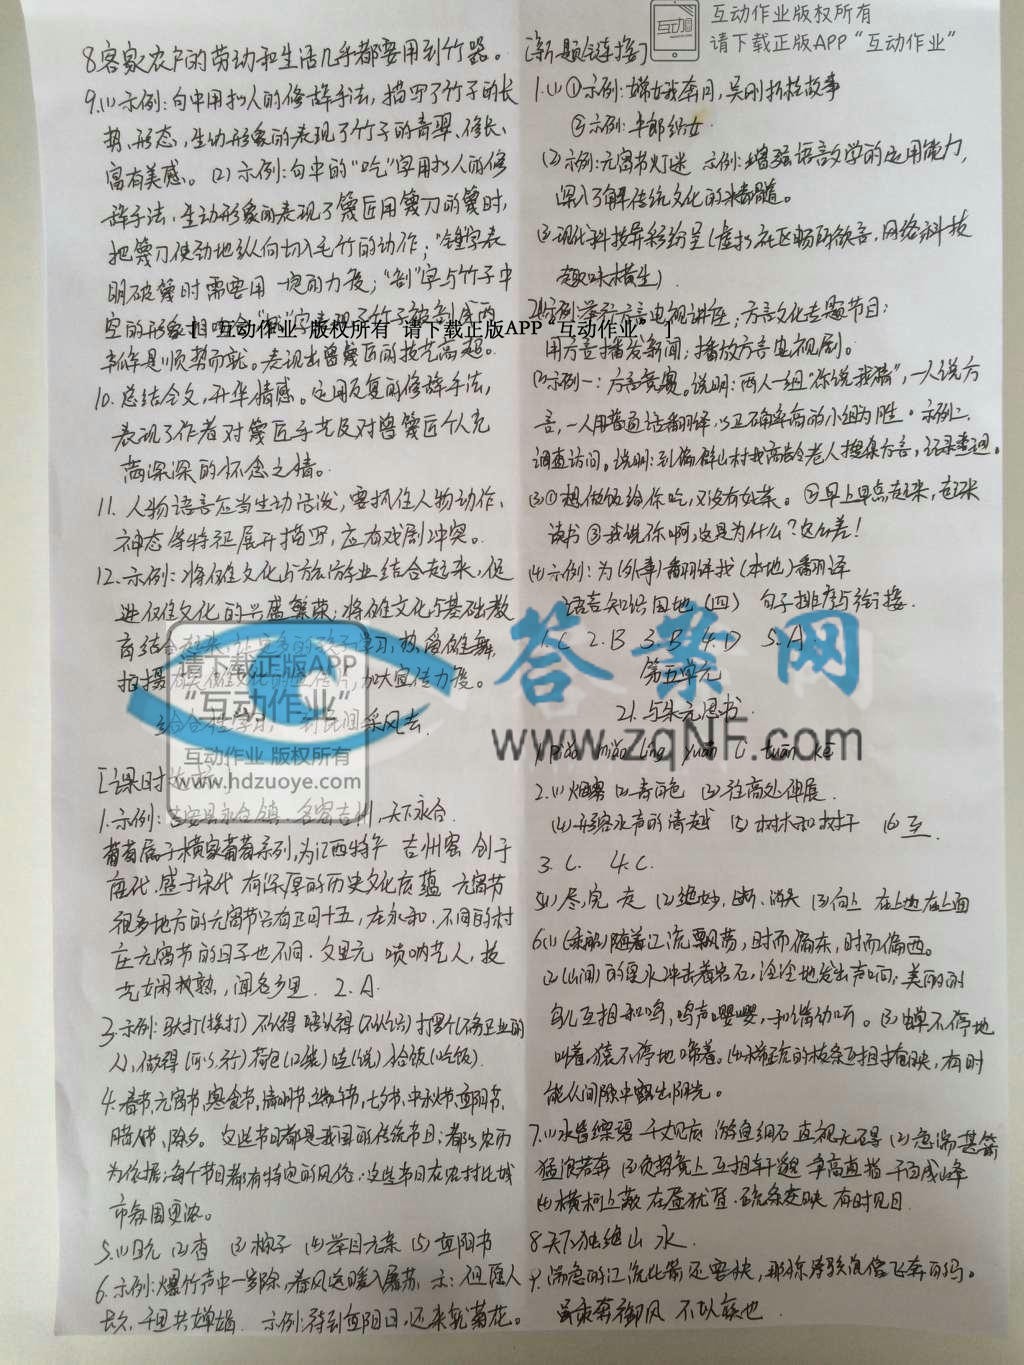 互动作业版权所有
请下载正版APP“互动作业”
8.客家农户的劳动和生活几乎都要用到竹器。
9.(1)示例:句中用拟人的修辞手法,描写了竹子的长
势、形态,生动形象的表现了竹子的青翠、修长、
富有美感。(2)示例:句中的“吃”字用拟人的修
辞手法,生动形象的表现了篾匠用篾刀的篾时,
把篾刀使劲地纵向切入毛竹的动作;
明破篾时需要用一定的力度;“剖”字与竹子中
【 互动作业 版权所有 请下载正版APP“互动作业” 】
半作是顺势而就。表现出曾篾匠的技艺高超。
10.总结全文,升华情感。运用反复的修辞手法,
表现了作者对篾匠手艺及对曾篾匠个人充
满深深的怀念之情。
11.人物语言应当生动活泼,要抓住人物动作、
神态等特征展开描写,应有戏剧冲突。
12.示例:将傩文化与旅游业结合起来,促
进傩文化的兴盛繁荣;将傩文化与基础教
育结合起来,让更多的孩子学习,热爱傩舞,
加大宣传力度。
请下载正版APP
“互动作业”
到民间采风去
互动作业 版权所有
www.hdzuoye.com
[课时
1.示例: 天下永和
唐代,盛于宋代 有深厚的历史文化底蕴 元宵节
很多地方的元宵节只有正月十五,在永和,不同的村
庄元宵节的日子也不同. 文里元 唢呐艺人,技
艺娴熟,闻名乡里. 2.A.
3.示例:驮打(挨打) 不认得 打野个(不务正业的
人),做得(可以,行) 荷包(口袋)
4.春节,元宵节,寒食节,清明节,端午节,七夕节,中秋节,重阳节,
腊八节,除夕。这些节日都是我国的传统节日;都以农历
为依据;每个节日都有特定的风俗;这些节日在农村比城
市氛围更浓。
5.(1)日元 (2)杏 (3)粽子 (4)举目无亲 (5)重阳书
6.示例:爆竹声中一岁除,春风送暖入屠苏. 示:但愿人
长久,千里共婵娟. 示例:待到重阳日,还来就菊花。
[新题链接]
1.(1)①示例:嫦娥奔月,吴刚折桂故事
②示例:牛郎织女.
(2)示例:元宵节灯谜 示例:增强语言文学的运用能力,
深入了解传统文化的精髓。
(3)现代科技异彩纷呈(虚拟社区畅所欲言,网络科技
趣味横生)
2.(1)示例:举行方言电视讲座;方言文化专题节目;
用方言播发新闻;播放方言电视剧。
(2)示例一:方言竞赛。说明:两人一组“你说我猜”,一人说方
言,一人用普通话翻译,以正确率高的小组为胜。示例二:
调查访问。说明:到偏僻山村找高龄老人搜集方言,记录整理。
(3)①想做饭给你吃,又没有好菜。②早上早点起来,起来
读书 ③我说你啊,这是为什么?这么差!
(4)示例:为(外事)翻译找(本地)翻译
语言知识园地(四) 句子排序与衔接.
1.C 2.B 3.B 4.D 5.A
答案网
第五单元
21.与朱元思书.
www.zqNF.com
2.(1)烟雾 (2)青白色 (3)往高处伸展.
(4)形容水声的清越 (5)树木和树干 (6)互.
3.C. 4.C.
5.(1)尽,完 走 (2)绝妙,断、消失 (3)向上 在上地,在上面
6.(1)(乘船)随着江流飘荡,时而偏东,时而偏西。
(2)(山间)的泉水冲击着岩石,泠泠地发出声响;美丽的
鸟儿互相和鸣,鸣声嘤嘤,和谐动听。(3)蝉不停地
叫着,猿不停地啼着。(4)稀疏的枝条互相掩映,有时
能从间隙中露出阳光。
7.(1)水皆缥碧 千丈见底 游鱼细石 直视无碍 (2)急湍甚箭
猛浪若奔 (3)负势竞上 互相轩邈 争高直指 千百成峰
(4)横柯上蔽 在昼犹昏.疏条交映 有时见日
8.天下独绝 山 水.
9.湍急的江流比箭还要快,那惊涛骇浪像飞奔的马。
虽乘奔御风 不以疾也.